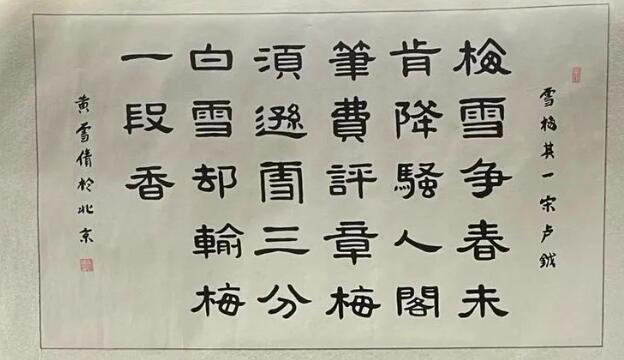 雪梅其一宋卢钺
梅雪争春未
肯降騷人閣
筆費評章梅
須遜雪三分
白雪却輸梅
一段香
黄雪倩於北京